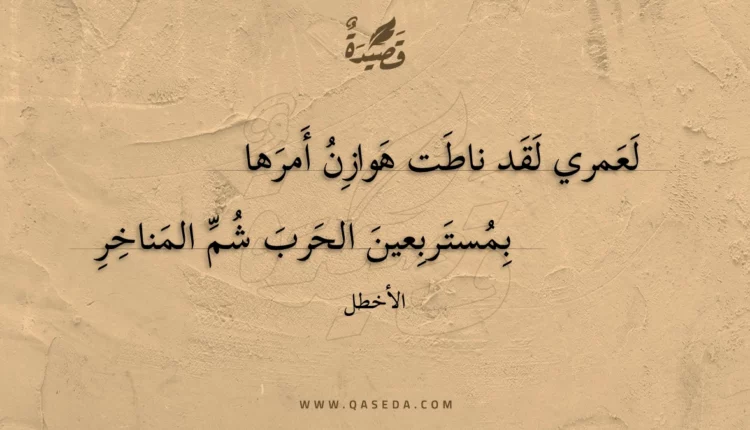 قَصِيدَةٌ
لَعَمري لَقَد ناطَت هَوازِنُ أَمرَها
بِمُستَربِعينَ الحَربَ شُمِّ المَناخِرِ
الأخطل
WWW.QASEDA.COM